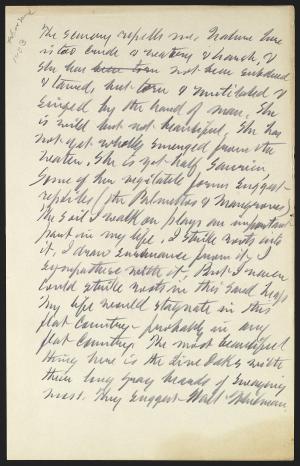 The scenery repells me. Nature here
is too crude & heating & harsh, &
She has been torn not been subdued
& tamed, but torn & mutilated &
singed by the hand of man. She
is wild but not beautiful. She has
not yet wholly emerged from the
. She is not half Saurian
Some of her vegitable forms suggest
reptiles (the Palmettos & Mangroves)
The soil I walk on plays an important
part in my life. I strike roots into
it, I draw sustenance from it, I
sympathise with it. But I never
could strike roots in this sand heap
My life would stagnate in this
flat Country — probably in any
flat Country. The most beautiful
thing here is the Live Oaks with
their long gray beards of swaying
moss. They suggest Walt Whitman.